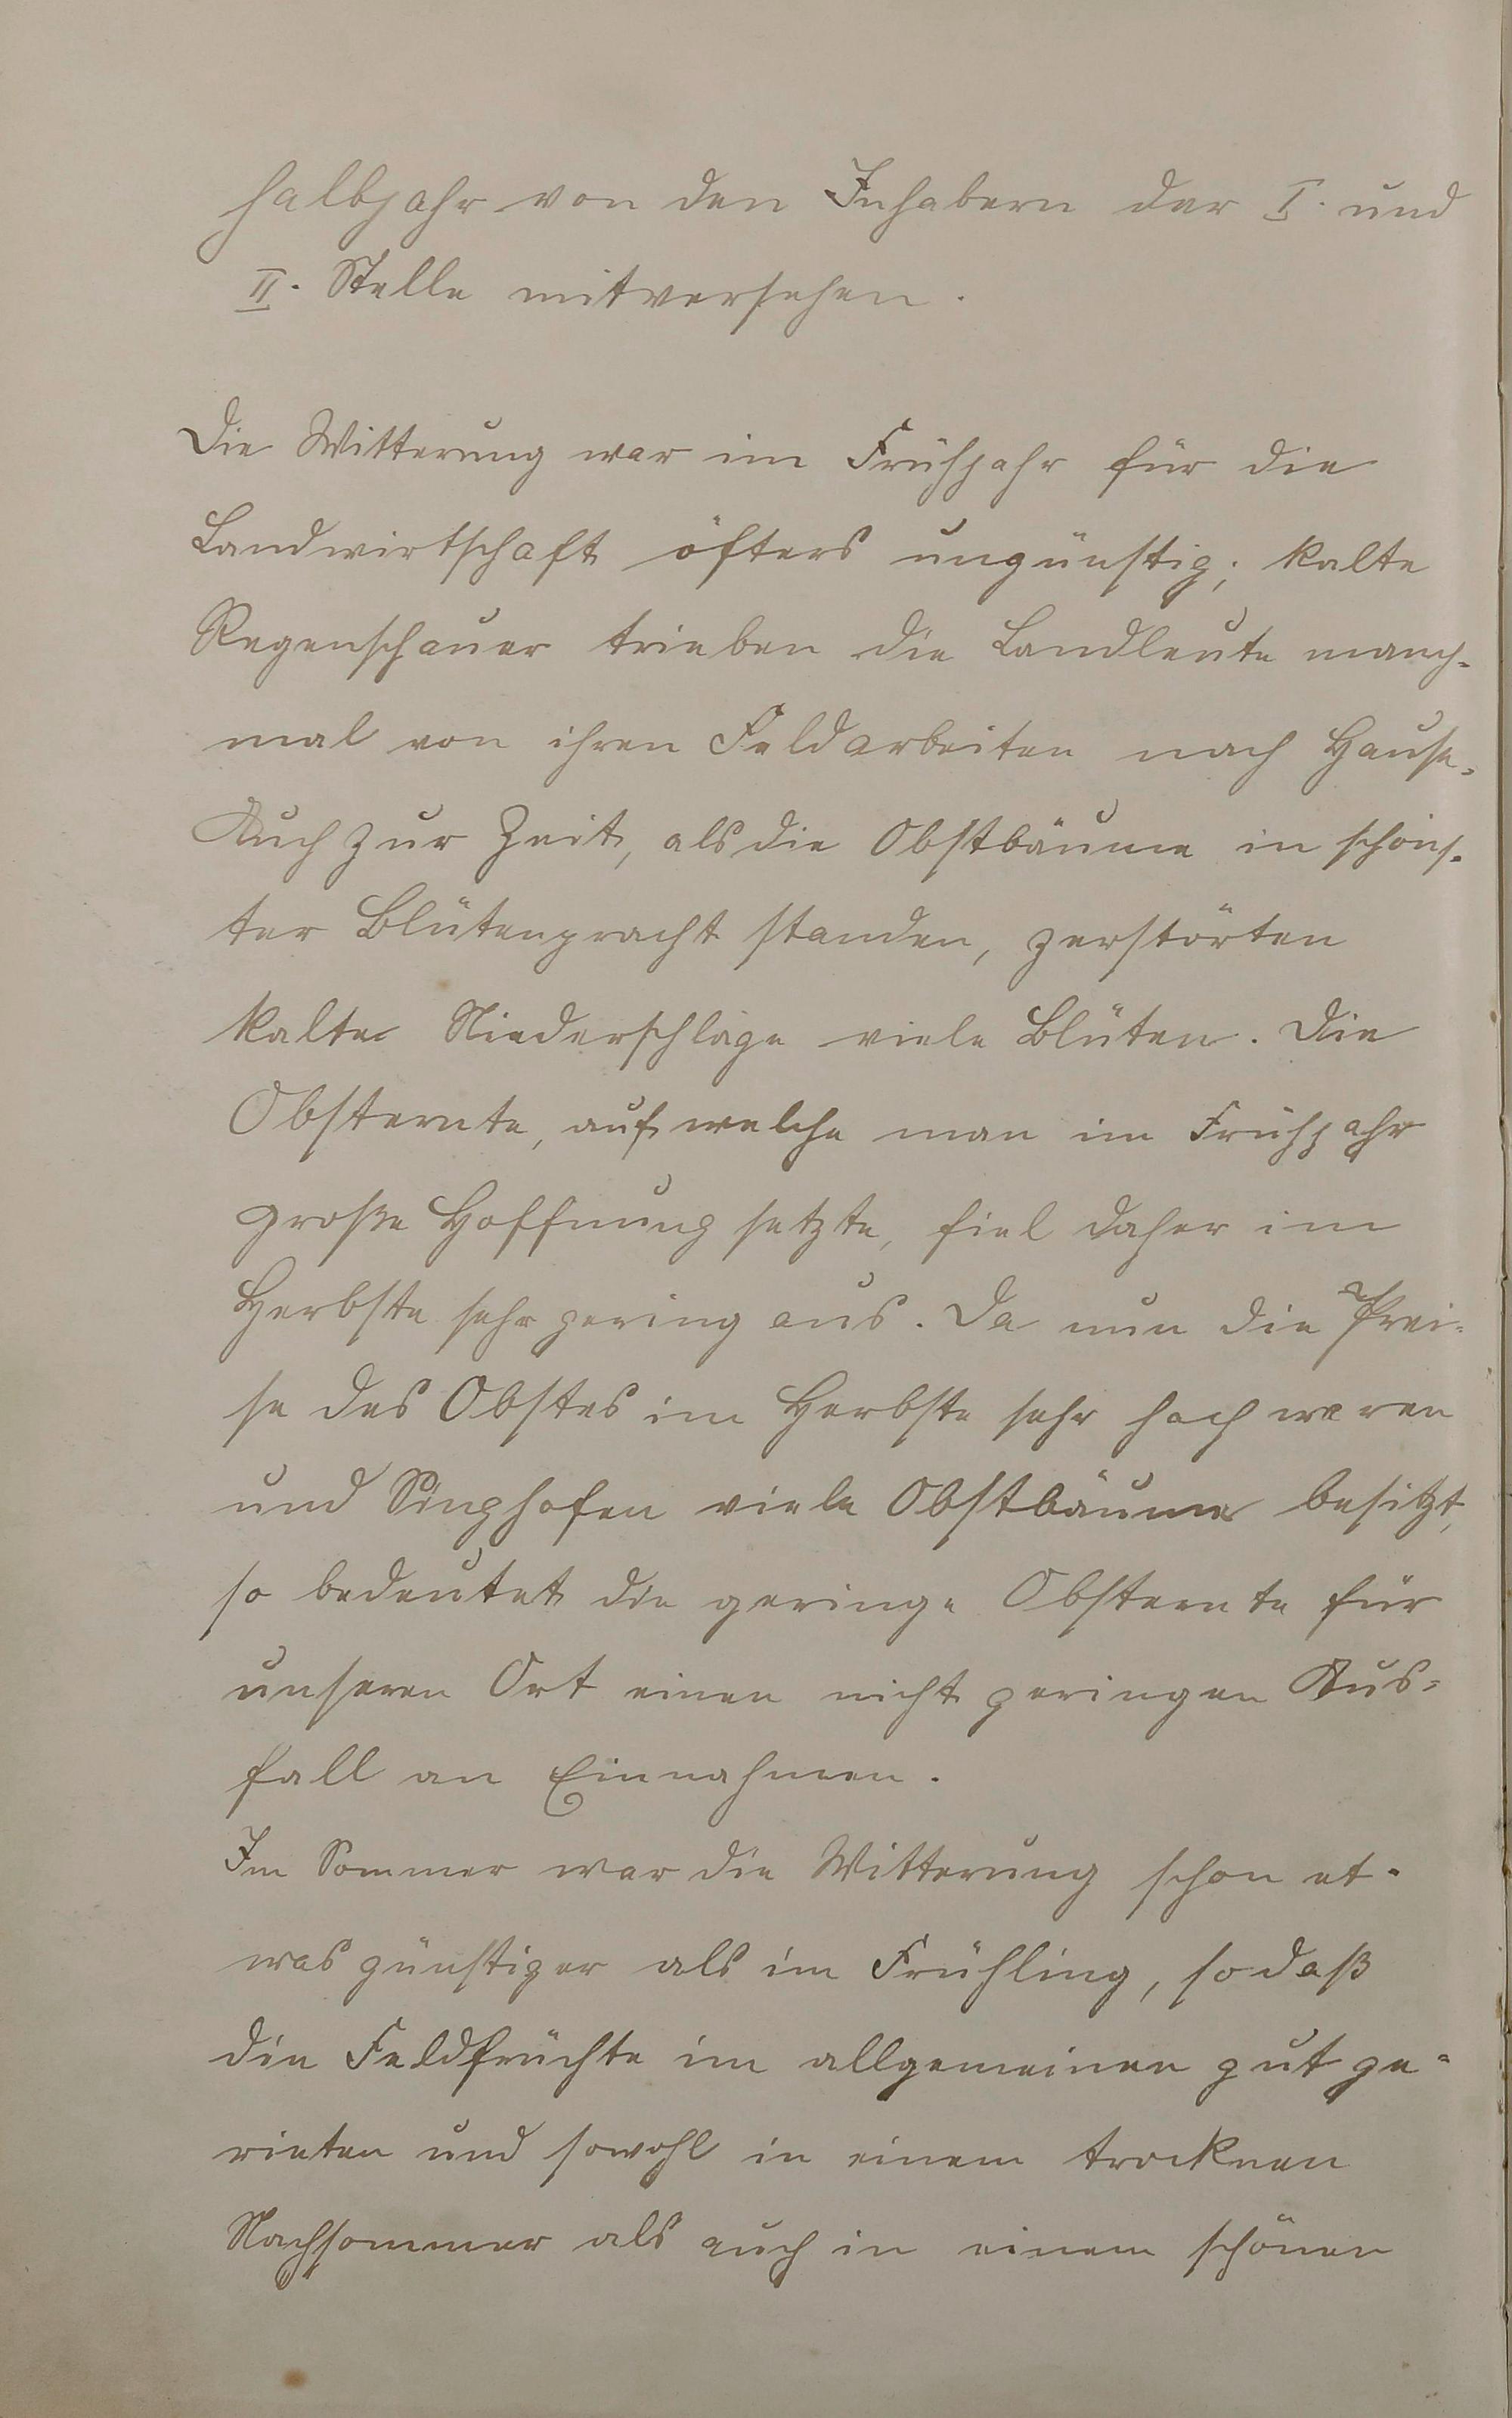 halbjahr von den Inhabern der I. und
II. Stelle mitversehen.
Die Witterung war im Frühjahr für die
Landwirtschaft öfters ungünstig; kalte
Regenschauer trieben die Landleute manch-
mal von ihren Feldarbeiten nach Hause.
Auch zur Zeit, als die Obstbäume in schöns-
ter Blütenpracht standen, zerstörten
kalte Niederschläge viele Blüten. Die
Obsternte, auf welche man im Frühjahr
große Hoffnung setzte, fiel daher im
Herbste sehr gering aus. Da nun die Prei-
se des Obstes im Herbste sehr hoch waren
und Singhofen viele Obstbäume besitzt,
so bedeutet die geringe Obsternte für
unseren Ort einen nicht geringen Aus-
fall an Einnahmen.
Im Sommer war die Witterung schon et-
was günstiger als im Frühling, sodaß
die Feldfrüchte im allgemeinen gut ge-
rieten und sowohl in einem trocknen
Nachsommer als auch in einem schönen